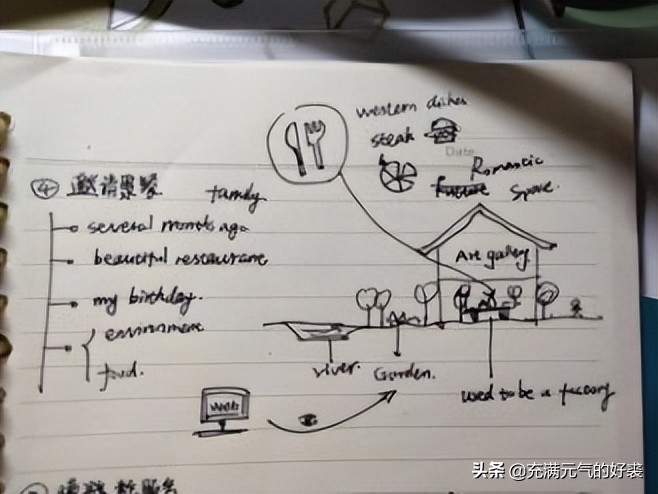 western dishes
steak
Date
Romantic
future space.
④ 邀请累餐
family
several months ago
beautiful restaurant
my birthday.
environment
food.
Art gallery
river.
Garden.
used to be a factory
Web
头条 @充满元气的好裘